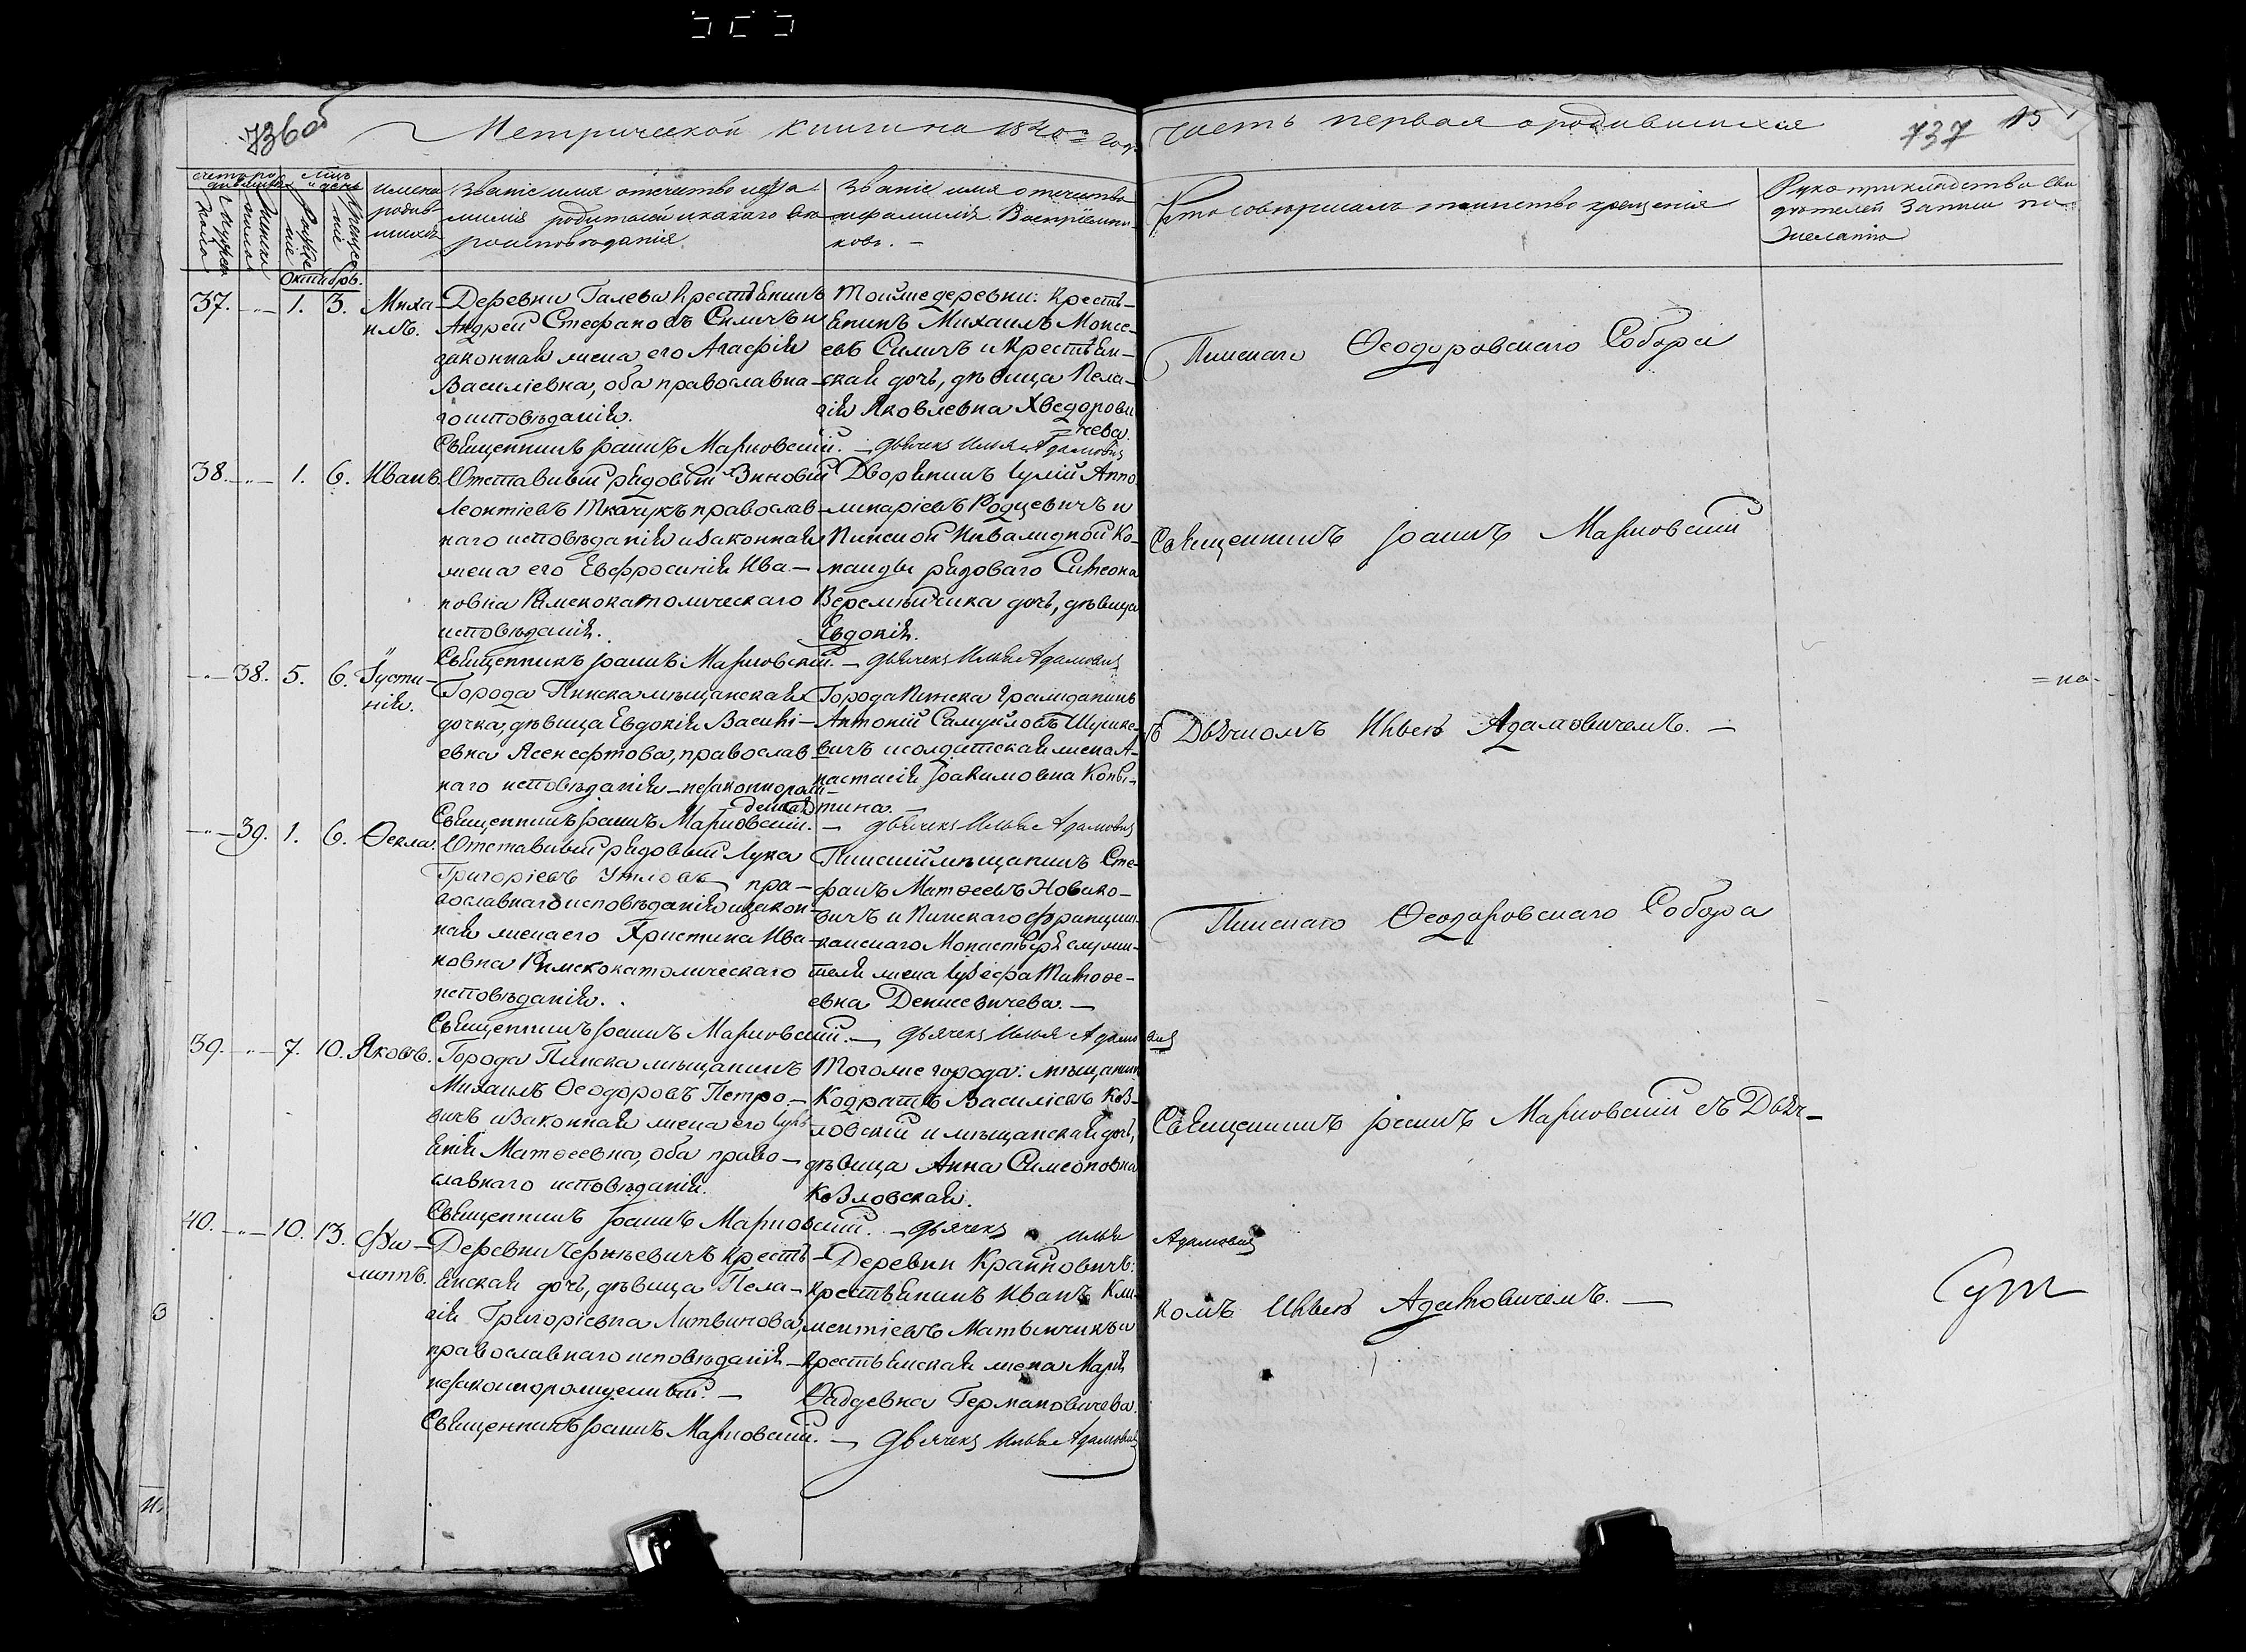 736об
Метрической книги на 1840го годъ
Часть первая о родившихся
737
15
Счетъ ро
дившихся
Мужес
каго
Женска
Мѣсяцъ
и день
Рожде
ніе
Крещее
ніе
имена
родив-
шихся
Званіе имя отечитво и фа
милія родителей и какаго вѣ
роисповѣданія.
Званіе имя отечитво
и фамилія Воспріемни-
ковъ. —
Кто совершалъ таинство крещенія
Рукоприкладство сви
дѣтелей Записи по
Желанію
Октябрь.
37. —"— 1. 3. Миха-
илъ.
Деревни Галева Крестьянинъ
Андрей Стефановъ Силичъ и
законная жена его Агафія
Василіевна, оба православна-
го исповѣданія.
Тойже деревни: Кресть-
янинъ Михаилъ Моисе-
евъ Силичъ и Крестьян-
ская дочь, дѣвица Пела-
гія Яковлевна Хведорови
=чева.
Священникъ Іоаннъ Марновскій. — Дьячекъ Илья Адамовичъ
Пинскаго Ѳеодоровскаго Собора
38. —"— 1. 6. Иванъ.
Отставный рядовый Зиновій
Леонтіевъ Ткачукъ православ-
наго исповѣданія и законная
жена его Евфросинія Ива-
новна Римскокатолическаго
исповѣданія.
Дворянинъ Іулій Аппо-
линаріевъ Родзевичъ и
Пинской Инвалидной Ко-
манды рядоваго Симеона
Веремѣйчика дочь, дѣвица
Евдокія.
Священникъ Іоаннъ Марновскій. — Дьячекъ Илья Адамовичъ
Священникъ Іоаннъ Марновскій
—"— 38. 5. 6. Іусти-
нія.
Города Пинска мѣщанская
дочка, дѣвица Евдокія Василі-
евна Асенефтова, православ-
наго исповѣданія — незаконнорож-
денная
Города Пинска Гражданинъ
Антоній Самуиловъ
вичъ и солдатская жена А-
настасія Іоакимовна Копы-
тина. —
Священникъ Іоаннъ Марновскій. — Дьячекъ Илья Адамовичъ
съ Дьячкомъ Ильею Адамовичемъ. —
= на-
—"— 39. 1. 6. Ѳекла.
Отставный рядовый Лука
Григоріевъ пра-
вославнаго исповѣданія и закон-
ная жена его Христина Ива-
новна Римскокатолическаго
исповѣданія.
Пинскій мѣщанинъ Сте-
фанъ Матѳеевъ Новико-
вичъ и Пинскаго Францыш-
канскаго Монастыря служи-
теля жена Іузефа Матѳе-
евна Денисевичева. —
Священникъ Іоаннъ Марновскій. — Дьячекъ Илья Адамовичъ
Пинскаго Ѳеодоровскаго Собора
39. —"— 7. 10. Яковъ.
Города Пинска мѣщанинъ
Михаилъ Ѳеодоровъ Петро-
вичъ и Законная жена его Іулі-
янія Матѳеевна, оба право-
славнаго исповѣданія.
Тогоже города: мѣщанинъ
Кодратъ Василіевъ Коз-
ловскій и мѣщанская дочь,
дѣвица Анна Симеоновна
Козловская.
Священникъ Іоаннъ Марновскій. — Дьячекъ Илья Адамовичъ
Священникъ Іоаннъ Марновскій съ Дьяч-
40. —"— 10. 13. Фи-
липпъ.
Деревни Чернѣевичъ кресть-
янская дочь, дѣвица Пела-
гія Григоріевна Литвинова,
православнаго исповѣданія —
незаконнорожденный. —
Деревни Крайновичъ:
крестьянинъ Иванъ Кли-
ментіевъ Матынчикъ и
крестьянская жена Марія
Ѳаддевна Германовичева.
Священникъ Іоаннъ Марновскій. — Дьячекъ Илья Адамовичъ
комъ Ильею Адамовичемъ. —
3
11.